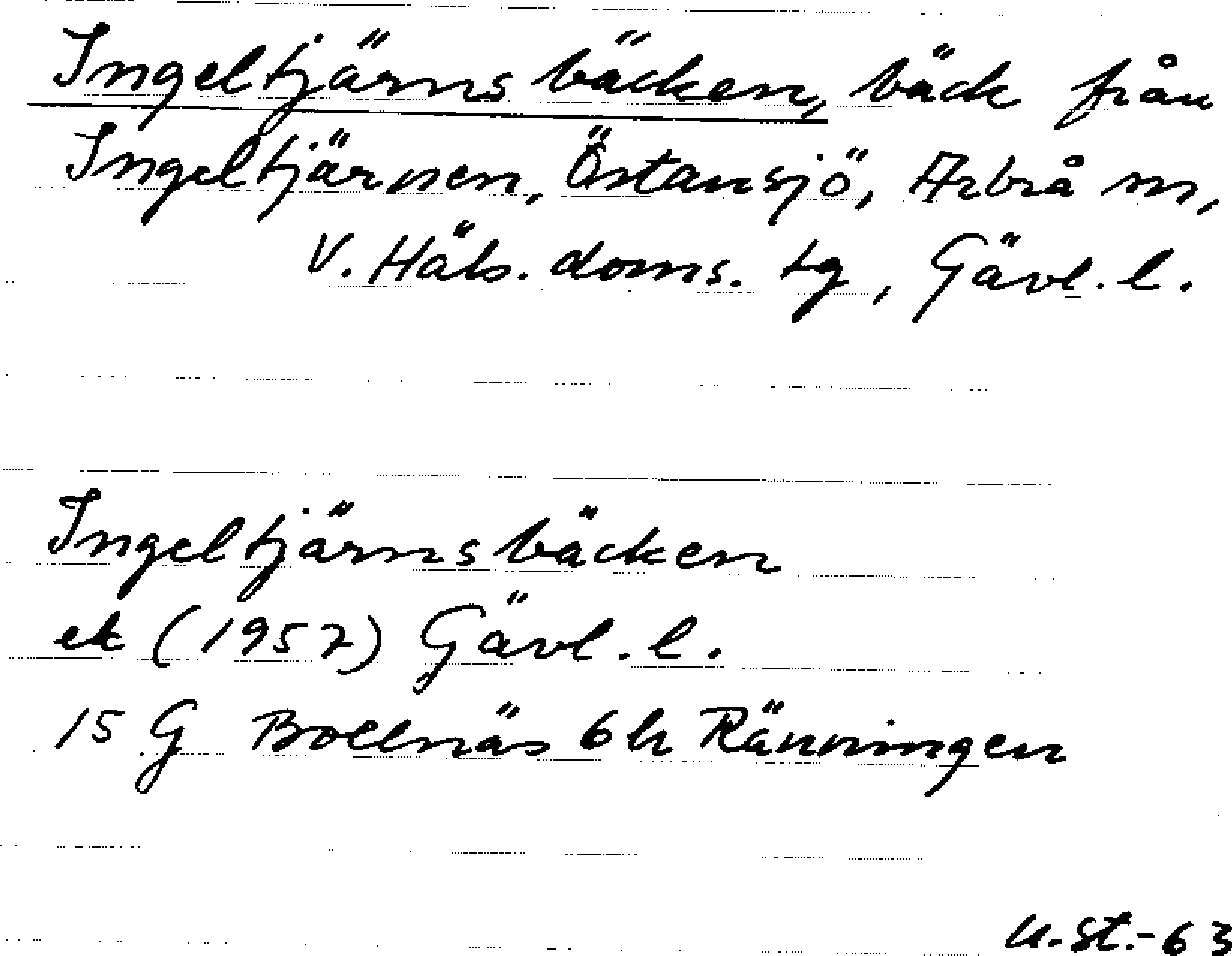 Ingeltjärnsbäcken, bäck från
Ingeltjärnen, Östansjö, Arbrå sn,
V. Häls. doms. tg, Gävl. l.
Ingeltjärnsbäcken
ek (1957) Gävl. l.
15 G Bollnäs 6h Ränningen
U.St.-63